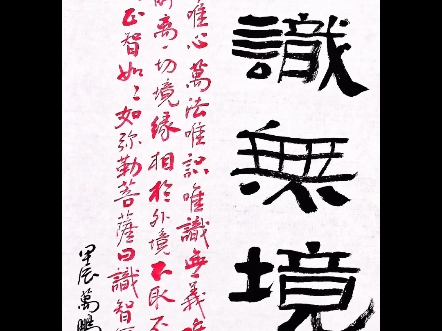 識無境
唯心萬法唯識唯識無義
離一切境緣相於外境不取不
正智如如如弥勒菩薩曰識智
甲辰萬鵬